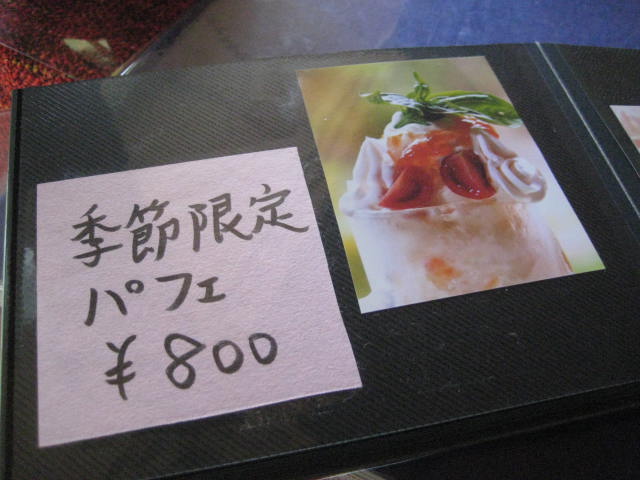 季節限定
パフェ
¥800